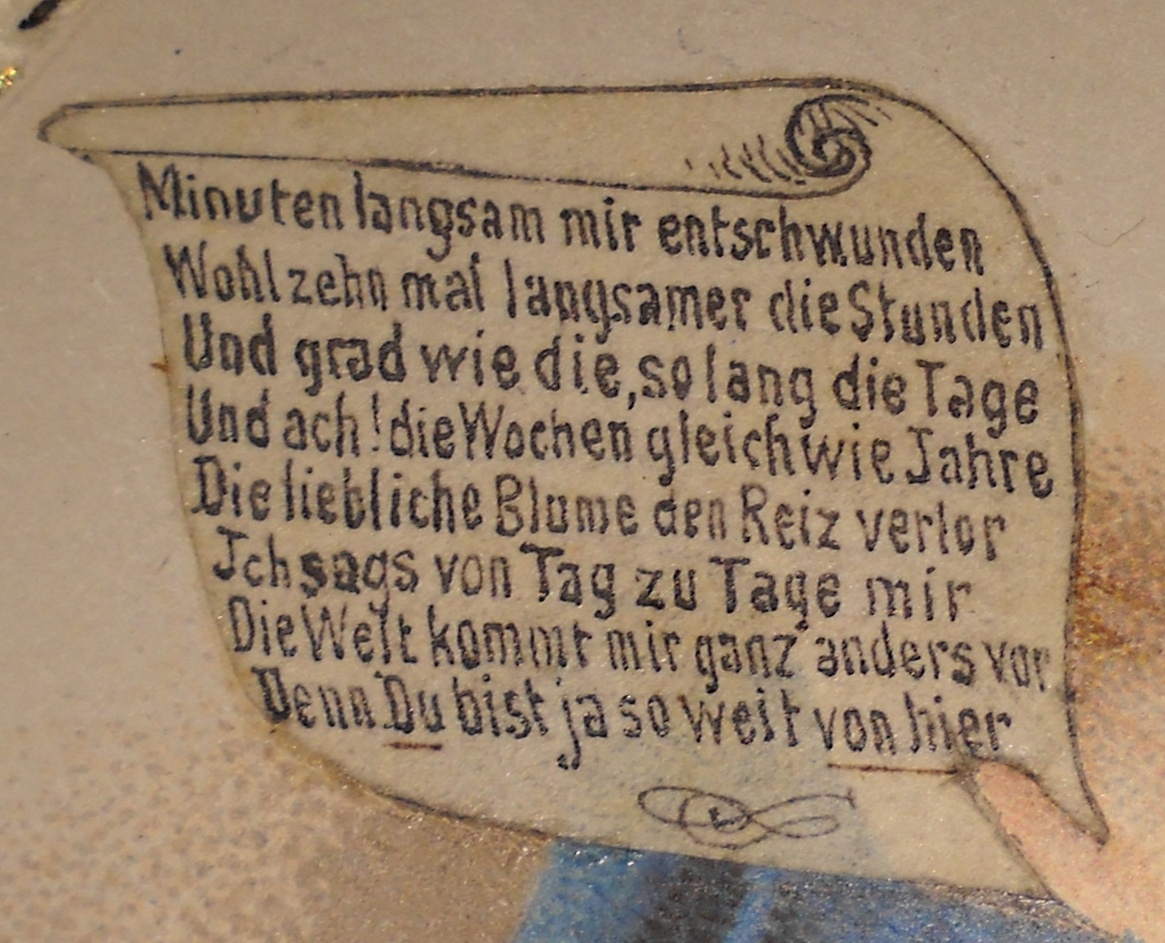 Minuten langsam mir entschwunden
Wohl zehn mal langsamer die Stunden
Und grad wie die, so lang die Tage
Und ach! die Wochen gleich wie Jahre
Die liebliche Blume den Reiz verlor
Jch sags von Tag zu Tage mir
Die Welt kommt mir ganz anders vor
Denn Du bist ja so weit von hier